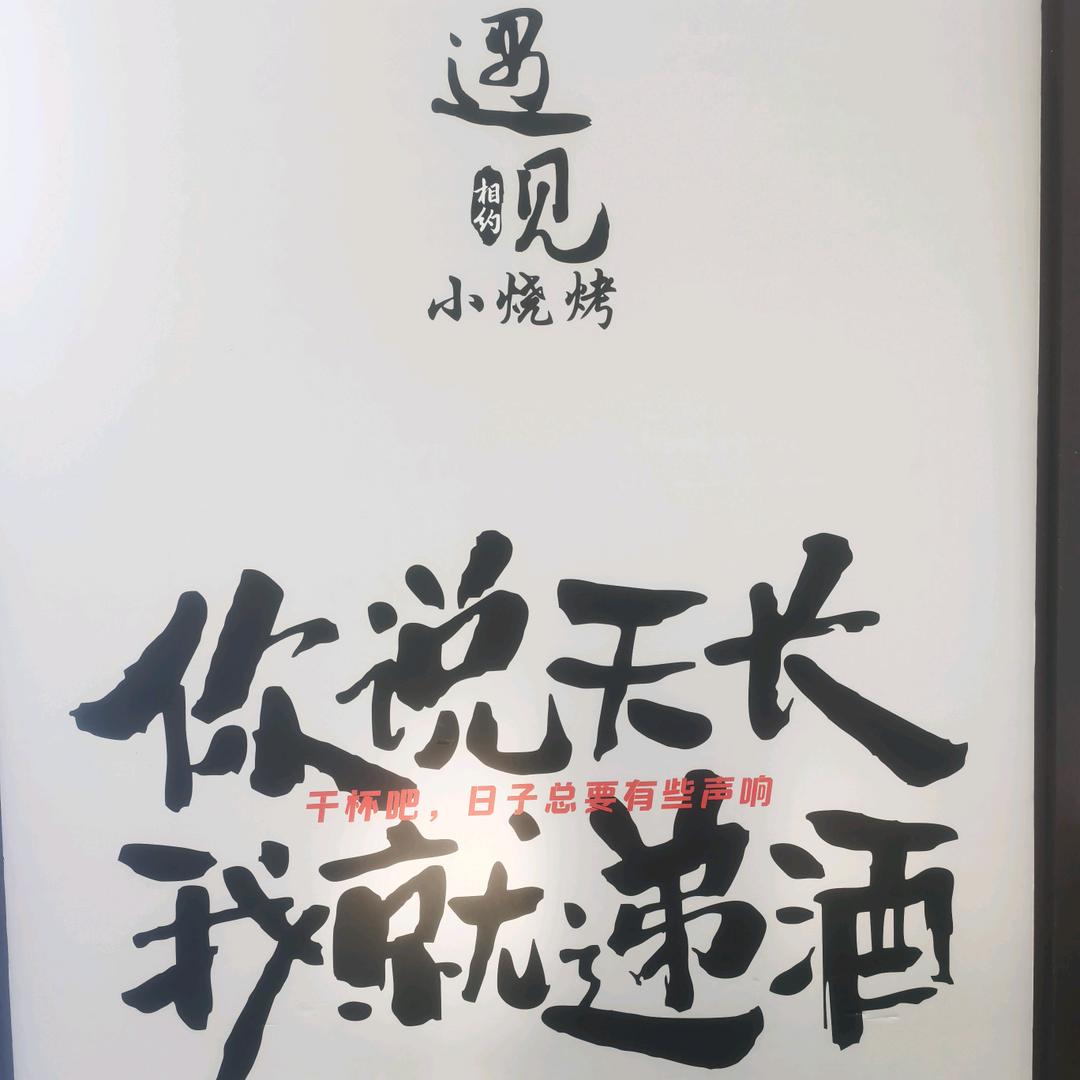 遇见
相约
小烧烤
你说天长
干杯吧，日子总要有些声响
我就递酒